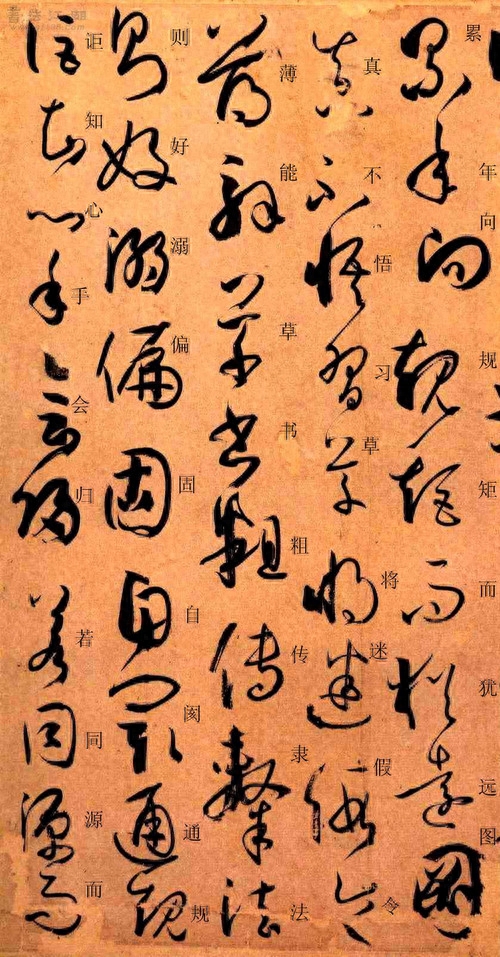 累年向规矩而犹远图
真不悟习草将迷假令
薄能草书粗传隶法
则好溺偏固自阂通规
讵知心手会归若同源而